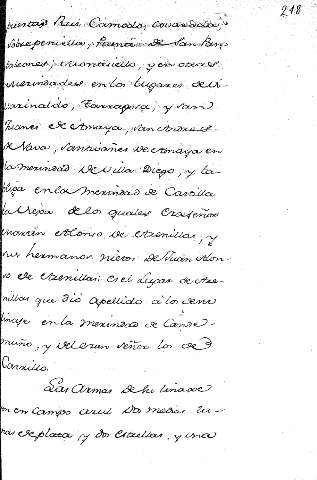 218
Ruiz Camodo, covarduela,
sobrepenillas, San
y en otras
merindades en los lugares de Vi
zarinaldo, Tarragusa; y San
Juanes de Amaya, San Andres
de Nava, de Amaya en
la merindad de Villa Diego, y la
en la Merindad de Castilla
la Vieja de los quales era señor
Martin Alonso de Arenillas, y
sus hermanos nietos de Juan Alon-
so de Arenillas: es el Lugar de Are
nillas que dió apellido á los deste
linaje en la merindad de Cande-
muño, y del eran señor los de
Carrillo.
Las Armas de su linaje
son en campo azul dos medias lu-
nas de plata, y dos estrellas, y una